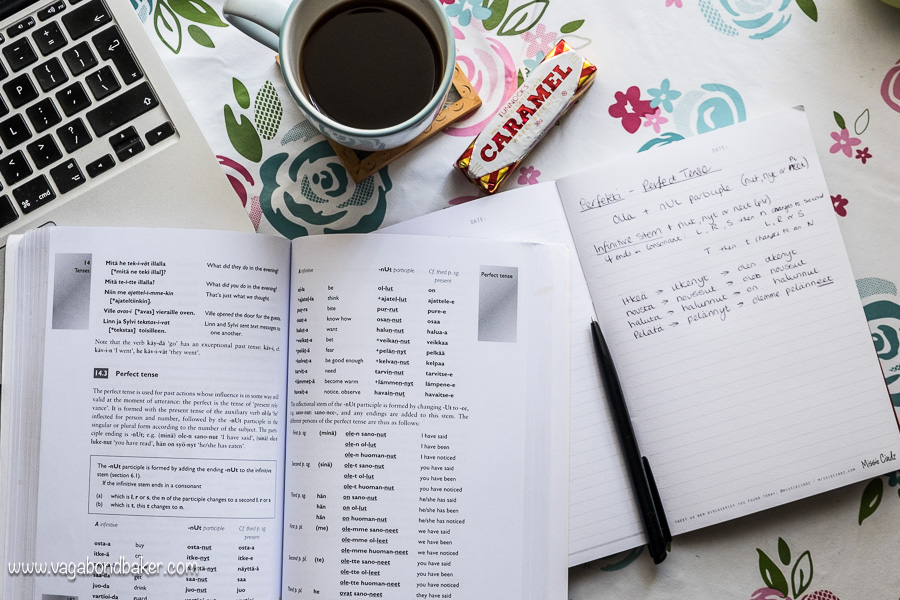 TUNNOCK'S
CARAMEL
14
Tenses
Mitä he tek-i-vät illalla
[*mitä ne teki illal]?
What did they do in the evening?
Mitä te-i-tte illalla?
What did you do in the evening?
Niin me ajattel-i-mme-kin
[*ajateltiinkin].
That's just what we thought.
Ville avas-i [*avas] vieraille oven.
Ville opened the door for the guests.
Linn ja Sylvi tekstas-i-vat
[*tekstas] toisilleen.
Linn and Sylvi sent text messages to
one another.
Note that the verb käy-dä 'go' has an exceptional past tense: käv-i,
käv-i-n 'I went', he käv-i-vät 'they went'.
14.3 Perfect tense
The perfect tense is used for past actions whose influence is in some way still
valid at the moment of utterance: the perfect is the tense of 'present rele-
vance'. It is formed with the present tense of the auxiliary verb ol-la 'be'
inflected for person and number, followed by the -nUt participle in the
singular or plural form according to the number of the subject. The parti-
ciple ending is -nUt; e.g. (minä) ole-n sano-nut 'I have said', (sinä) olet
luke-nut 'you have read', hän on syö-nyt 'he/she has eaten'.
The -nUt participle is formed by adding the ending -nUt to the infinitive
stem (section 6.1).
If the infinitive stem ends in a consonant
(a) which is l, r or s, the n of the participle changes to a second l, r or s
(b) which is t, this t changes to n.
A infinitive -nUt participle Cf. third p. sg.
present
osta-a buy osta-nut osta-a
itke-ä itke-nyt
näyttä-ä
saa-da get saa-nut saa
juo-da juo-nut juo
vartioi-da guard
Perfect tense
A infinitive -nUt participle Cf. third p. sg.
present
ol-la be ol-lut on
+ajatel-la think +ajatel-lut ajattele-e
pur-ra bite pur-rut pure-e
osat-a know how osan-nut osaa
halut-a want halun-nut halua-a
+veikat-a bet +veikan-nut veikkaa
+pelät-ä fear +pelän-nyt pelkää
+kelvat-a be good enough +kelvan-nut kelpaa
tarvit-a need tarvin-nut tarvitse-e
+lämmet-ä become warm +lämmen-nyt lämpene-e
havait-a notice, observe havain-nut havaitse-e
The inflectional stem of the -nUt participle is formed by changing -Ut to -ee,
e.g. sano-nut: sano-nee-, and any endings are added to this stem. The
different persons of the perfect tense are thus as follows:
First p. sg. (minä) ole-n sano-nut I have said
ole-n ol-lut I have been
ole-n huoman-nut I have noticed
Second p. sg. (sinä) ole-t sano-nut you have said
ole-t ol-lut you have been
ole-t huoman-nut you have noticed
Third p. sg. hän on sano-nut he/she has said
hän on ol-lut he/she has been
hän on huoman-nut he/she has noticed
First p. pl. (me) ole-mme sano-neet we have said
ole-mme ol-leet we have been
ole-mme huoman-neet we have noticed
Second p. pl. (te) ole-tte sano-neet you have said
ole-tte ol-leet you have been
ole-tte huoman-neet you have noticed
Third p. pl. he ovat sano-neet they have said
DATE:
DATE:
Perfekti - Perfect Tense
Olla + nUt participle (nut, nyt or neet)
Infinitive stem + nut, nyt or neet (pl)
if ends - consonant L, R, S then n changes to second
L, R or S
T then t changes to an N
Itkeä → itkenyt → olen itkenyt
nousta → noussut → olet noussut
haluta → halunnut → on halunnut
Pelätä → pelännyt → olemme pelänneet
Missie Cindz
www.vagabondbaker.com